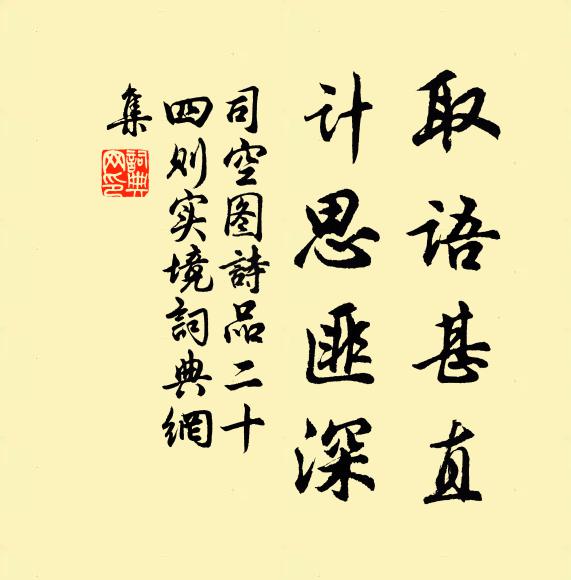 取语甚直
计思匪深
司空图詩品二十
四则实境詞典網
集
詞典
网印